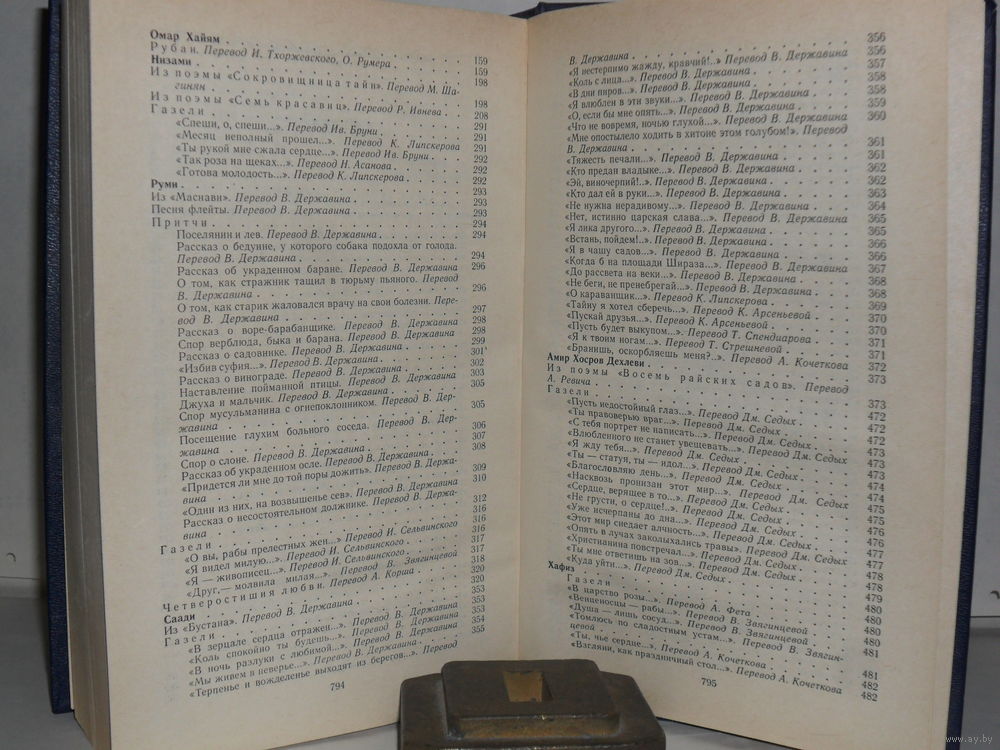 Омар Хайям 159
Рубаи. Перевод И. Тхоржевского, О. Румера 159
Низами 198
Из поэмы «Сокровищница тайн». Перевод М. Ша-
гинян 198
Из поэмы «Семь красавиц». Перевод Р. Ивнева 208
Газели 291
«Спеши, о, спеши...». Перевод Ив. Бруни 291
«Месяц неполный прошел...». Перевод К. Липскерова 291
«Ты рукой мне сжала сердце...». Перевод Ив. Бруни 292
«Так роза на щеках...». Перевод Н. Асанова 292
«Готова молодость...». Перевод К. Липскерова 292
Руми 293
Из «Маснави». Перевод В. Державина 293
Песня флейты. Перевод В. Державина 293
Притчи 294
Поселянин и лев. Перевод В. Державина 294
Рассказ о бедуине, у которого собака подохла от голода.
Перевод В. Державина 294
Рассказ об украденном баране. Перевод В. Державина 296
О том, как стражник тащил в тюрьму пьяного. Перевод
В. Державина 296
О том, как старик жаловался врачу на свои болезни. Пере-
вод В. Державина 297
Рассказ о воре-барабанщике. Перевод В. Державина 298
Спор верблюда, быка и барана. Перевод В. Державина 298
Рассказ о садовнике. Перевод В. Державина 299
«Избив суфия...». Перевод В. Державина 301
Рассказ о винограде. Перевод В. Державина 302
Наставление пойманной птицы. Перевод В. Державина 303
Джуха и мальчик. Перевод В. Державина 305
Спор мусульманина с огнепоклонником. Перевод В. Дер-
жавина 305
Посещение глухим больного соседа. Перевод В. Дер-
жавина 306
Спор о слоне. Перевод В. Державина 307
Рассказ об украденном осле. Перевод В. Державина 308
«Придется ли мне до той поры дожить». Перевод В. Держа-
вина 309
«Один из них, на возвышенье сев». Перевод В. Державина 310
Рассказ о несостоятельном должнике. Перевод В. Держа-
вина 312
Газели 316
«О вы, рабы прелестных жен...» Перевод И. Сельвинского 316
«Я видел милую...». Перевод И. Сельвинского 316
«Я — живописец...». Перевод И. Сельвинского 317
«Друг,— молвила милая...». Перевод В. Звягинцевой 317
Четверостишия любви. Перевод А. Корша 318
Саади 320
Из «Бустана». Перевод В. Державина 320
Газели 353
«В зерцале сердца отражен...». Перевод В. Державина 353
«Коль спокойно ты будешь...». Перевод В. Державина 353
«В ночь разлуки с любимой...». Перевод В. Державина 354
«Мы живем в неверье...». Перевод В. Державина 355
«Терпенье и вожделенье выходят из берегов...». Перевод
794
В. Державина 356
«Я нестерпимо жажду, кравчий!..» Перевод В. Державина 356
«Коль с лица...». Перевод В. Державина 357
«В дни пиров...». Перевод В. Державина 358
«Я влюблен в эти звуки...». Перевод В. Державина 358
«О, если бы мне опять...». Перевод В. Державина 359
«Что не вовремя, ночью глухой...». Перевод В. Державина 360
«Мне опостылело ходить в хитоне этом голубом!». Перевод
В. Державина 361
«Тяжесть печали...». Перевод В. Державина 361
«Кто предан владыке...». Перевод В. Державина 362
«Эй, виночерпий!..». Перевод В. Державина 362
«Кто дал ей в руки...». Перевод В. Державина 363
«Не нужна нерадивому...». Перевод В. Державина 364
«Нет, истинно царская слава...». Перевод В. Державина 365
«Я лика другого...». Перевод В. Державина 365
«Встань, пойдем!..». Перевод В. Державина 366
«Я в чашу садов...». Перевод В. Державина 366
«Когда б на площади Шираза...». Перевод В. Державина 367
«До рассвета на веки...». Перевод В. Державина 368
«Не беги, не пренебрегай...». Перевод В. Державина 368
«О караванщик...». Перевод К. Липскерова 369
«Тайну я хотел сберечь...». Перевод К. Арсеньевой 370
«Пускай друзья...». Перевод К. Арсеньевой 370
«Пусть будет выкупом...». Перевод Т. Спендиарова 371
«Я к твоим ногам...». Перевод Т. Стрешневой 371
«Бранишь, оскорбляешь меня?..». Перевод А. Кочеткова 372
Амир Хосров Дехлеви 373
Из поэмы «Восемь райских садов». Перевод
А. Ревича 373
Газели 472
«Пусть недостойный глаз...». Перевод Дм. Седых 472
«Ты правоверью враг...». Перевод Дм. Седых 472
«С тебя портрет не написать...». Перевод Дм. Седых 473
«Влюбленного не станет увещевать...». Перевод Дм. Седых 473
«Я жду тебя...». Перевод Дм. Седых 473
«Ты — статуя, ты — идол...». Перевод Дм. Седых 474
«Благословляю день...». Перевод Дм. Седых 474
«Насквозь пронизан этот мир...». Перевод Дм. Седых 475
«Сердце, верящее в то...». Перевод Дм. Седых 475
«Не грусти, о сердце!..». Перевод Дм. Седых 475
«Уже исчерпаны до дна...». Перевод Дм. Седых 476
«Этот мир снедает алчность...». Перевод Дм. Седых 476
«Опять в лучах заколыхались травы». Перевод Дм. Седых 477
«Христианина повстречал...». Перевод Дм. Седых 477
«Ты мне ответишь на зов...». Перевод Дм. Седых 478
«Куда уйти...». Перевод Дм. Седых 478
Хафиз 479
Газели 480
«В царство розы...». Перевод А. Фета 480
«Венценосцы — рабы...». Перевод В. Звягинцевой 480
«Душа — лишь сосуд...». Перевод В. Звягинцевой 481
«Томлюсь по сладостным устам...». Перевод В. Звягин-
цевой 481
«Ты, чье сердце...». Перевод А. Кочеткова 482
«Взгляни, как праздничный стол...». Перевод А. Кочеткова 482
795
www.ay.by